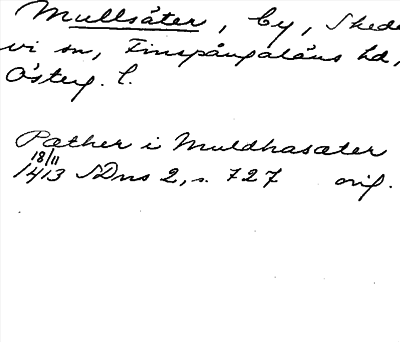 Mullsäter, by, Skede
vi sn, Finspångaläns hd,
Österg. l.
Pæther i Muldhasæter
18/11
1413 SDns 2, s. 727 orig.